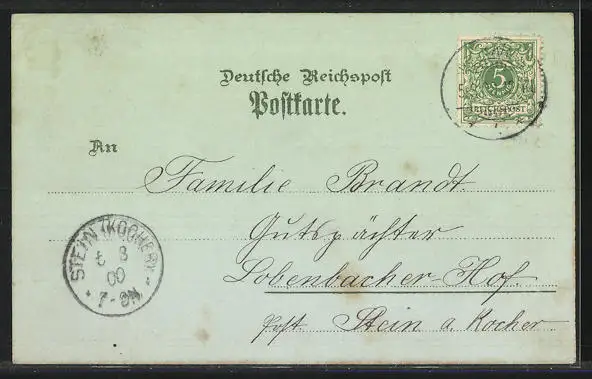 Deutsche Reichspost
Postkarte.
5
REICHSPOST
An
Familie Brandt.
Gutspächter
Lobenbacher-Hof.
Post. Stein a. Kocher
STEIN (KOCHER)
8
00
7-8N.